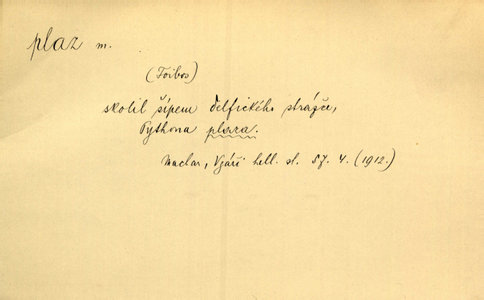 plaz m.
(Foibos)
skolil šípem delfického strážce,
Pythona plaza.
Maclar, V září hell. sl. 57. 4. (1912.)